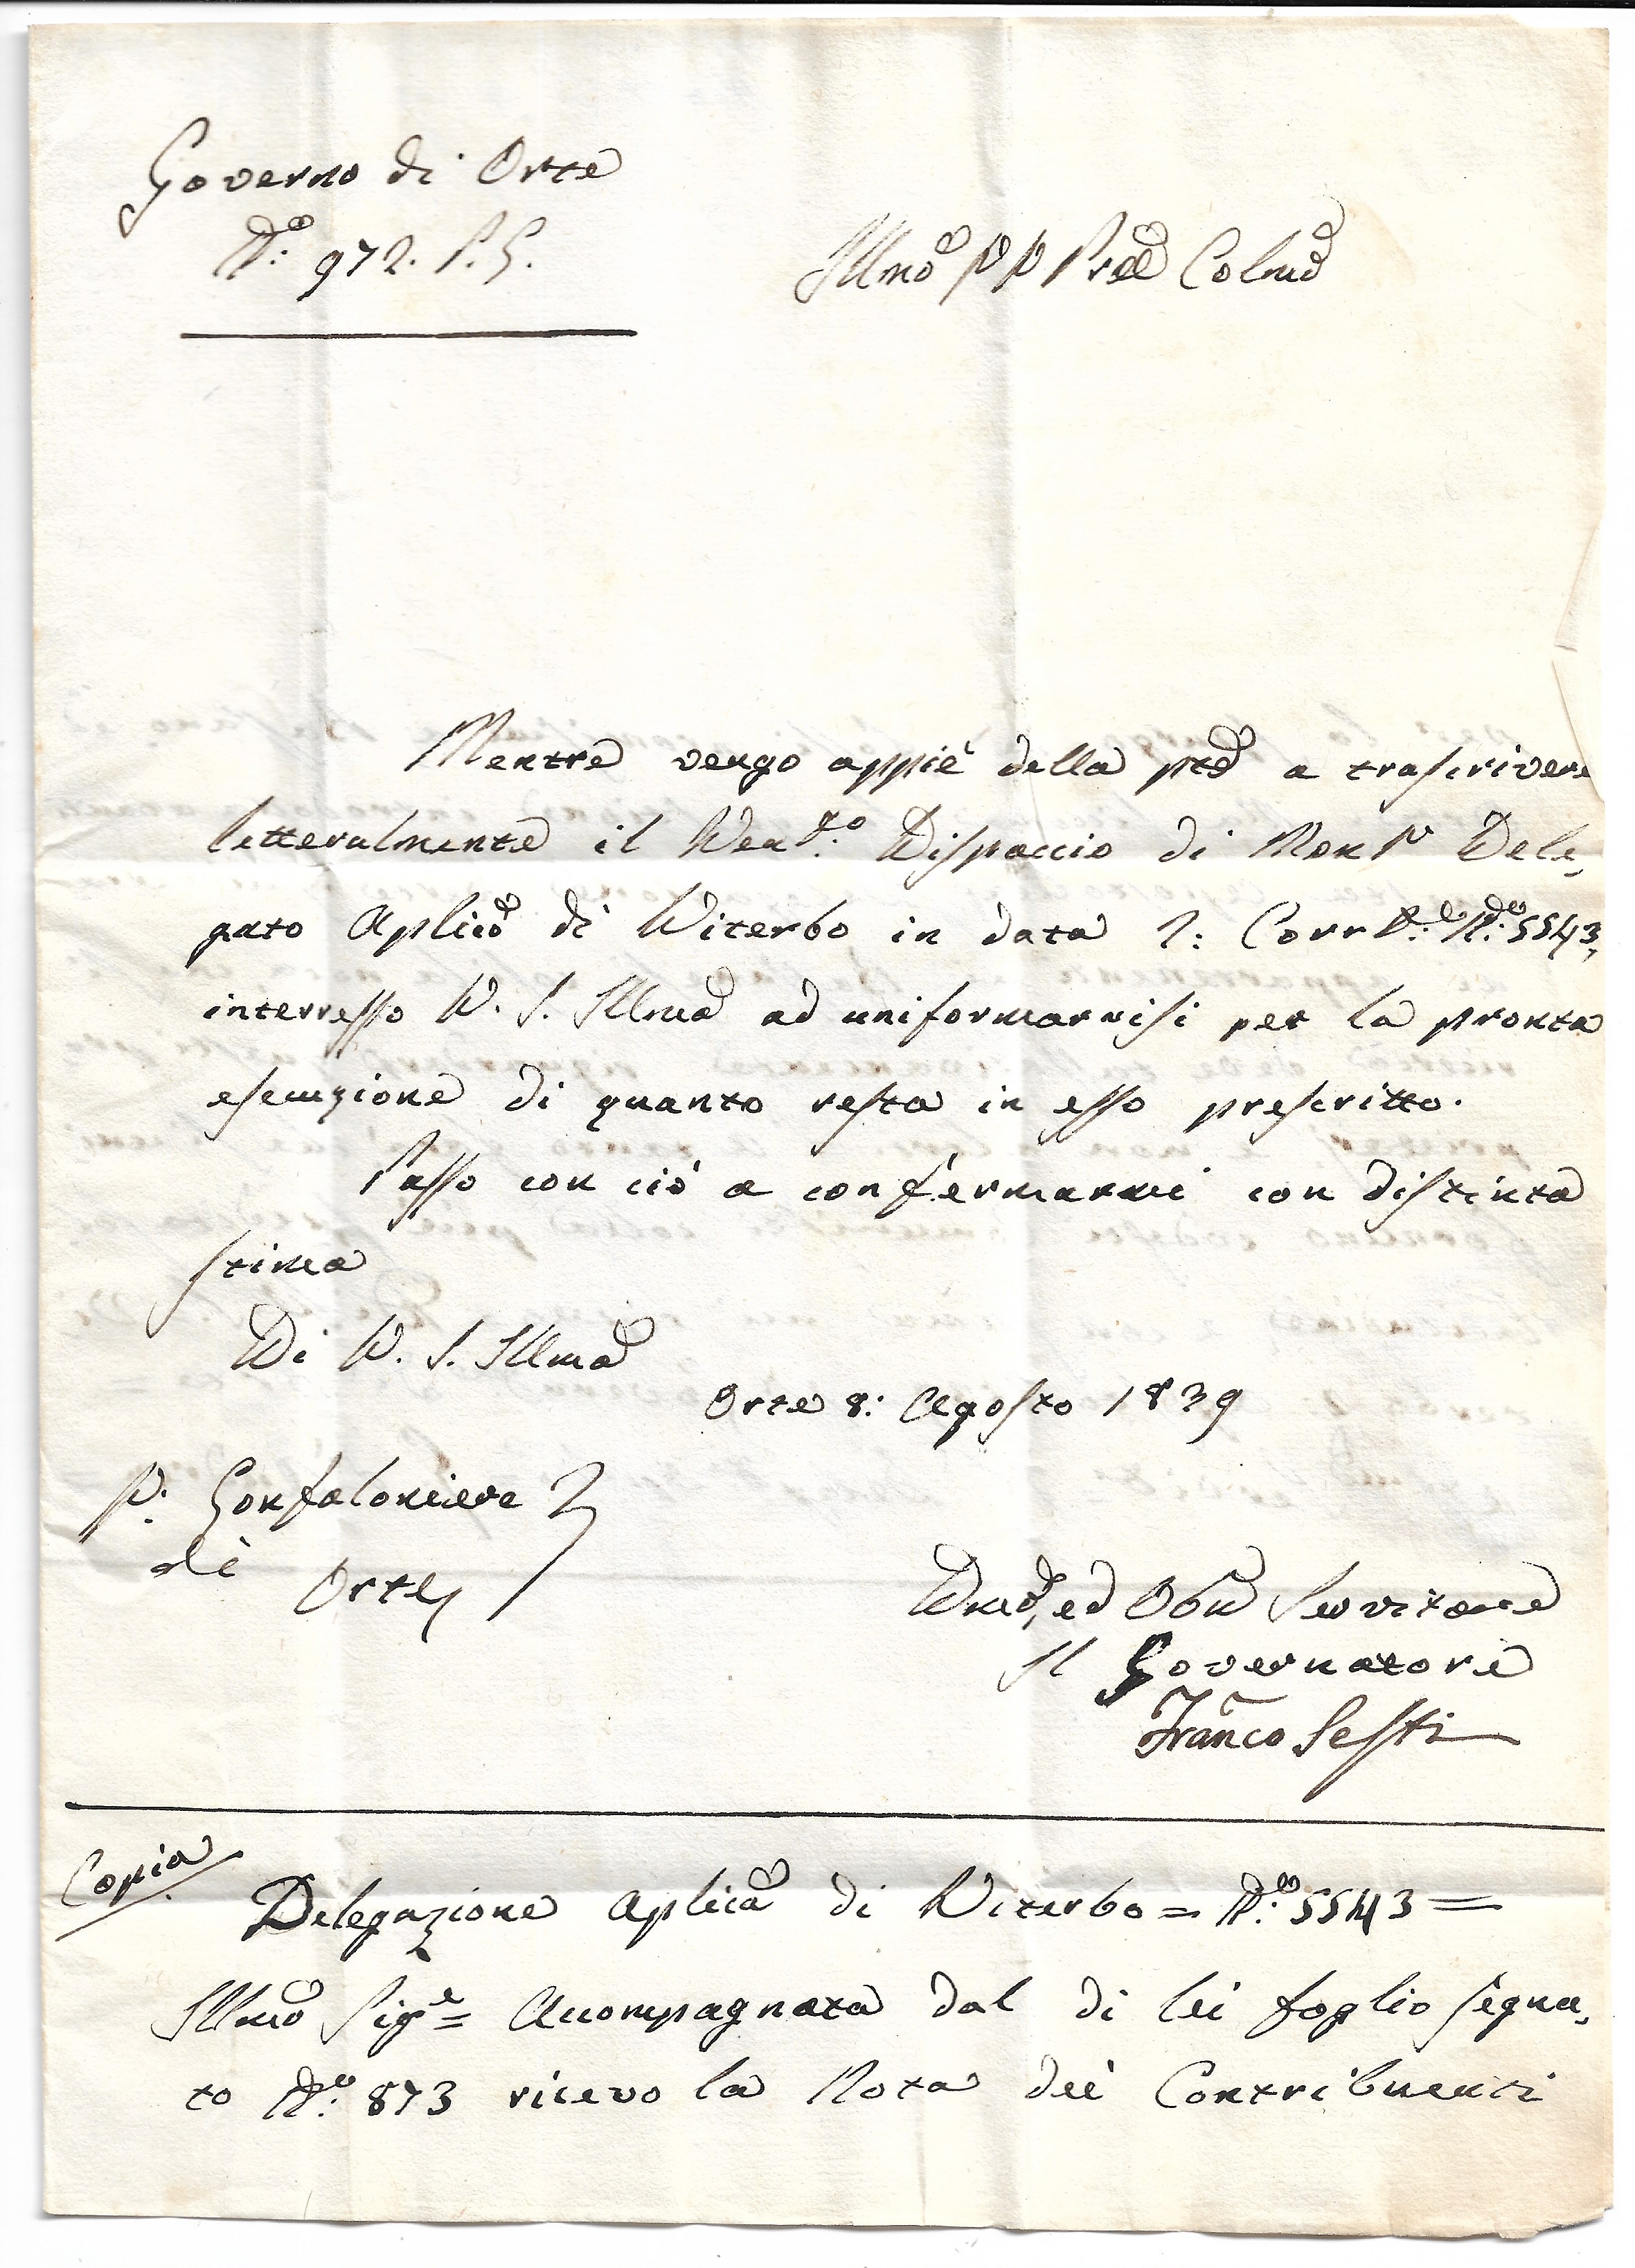 Governo di Orte
N.º 972. P. G.
Illmo Colmo
Mentre vengo appiè della pte a trascrivere
letteralmente il Ven.to Dispaccio di Monsr Dele,
gato Aplico di Viterbo in data Corr.e N.º 5543,
interresso V. S. Illma ad uniformarvisi per la pronta
esecuzione di quanto resta in esso prescritto.
Passo con ciò a confermarmi con distinta
stima
Di V. S. Illma
Orte 8: Agosto 1839
Gonfaloniere
di Orte
ed Servitore
Il Governatore
Franco Sesti
Copia
Delegazione Aplica di Viterbo = N.º 5543 =
Illmo Sigre = Accompagnata dal di lei foglio segna,
to N.º 873 ricevo la Nota dei Contribuenti